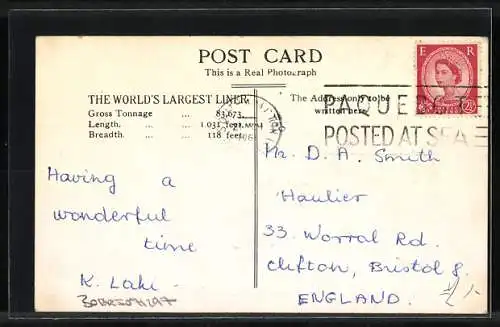 POST CARD
This is a Real Photograph
E R
THE WORLD'S LARGEST LINER
Gross Tonnage ... 83,673
Length. ... ... 1,031 feet.
Breadth. ... ... 118 feet.
The Address only to be
written here.
PAQUE
POSTED AT SEA
Having a
wonderful
time
Mr. D. A. Smith
Haulier
33 Worral Rd.
Clifton, Bristol 8.
ENGLAND.